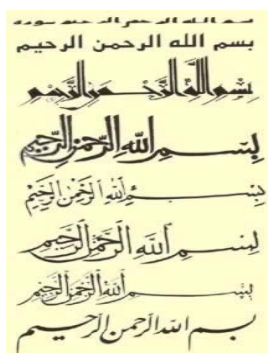 بسم الله الرحمن الرحيم
بسم الله الرحمن الرحيم
بسم الله الرحمن الرحيم
بِسْمِ اللهِ الرَّحْمنِ الرَّحِيمِ
بِسْمِ اللهِ الرَّحْمنِ الرَّحِيمِ
بِسْمِ اللهِ الرَّحْمنِ الرَّحِيمِ
بِسْمِ اللهِ الرَّحْمنِ الرَّحِيمِ
بسم الله الرحمن الرحيم